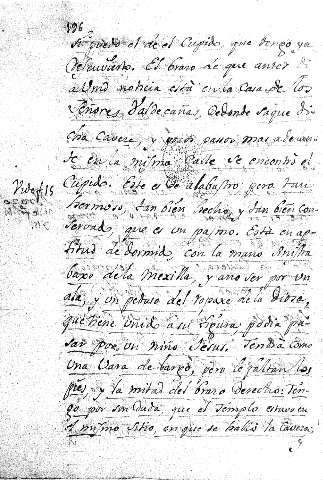 196
puedo el de el Cupido, que tengo ya
descubierto. El brazo de que antes di
a Vmd noticia está en la Casa de los
Señores Valdecañas, de donde saque di-
cha Caveza, y pocos pasos mas adelan-
te en la misma Calle se encontró el
Cupido. Este es de alabastro pero tan
hermoso, tan bien hecho, y tan bien con-
servado, que es un pasmo. Está en ap-
titud de dormido, con la mano
baxo de la Mexilla, y a no ser por un
ala, y un pedaso del ropaxe de la Diosa,
que tiene unido a su figura podia pa-
sar por un niño Jesus. Tendra como
una vara de largo, pero le faltan los
pies, y la mitad del brazo derecho: Ten-
go por sin duda, que el Templo estuvo en
el mismo sitio, en que se halló la Caveza: